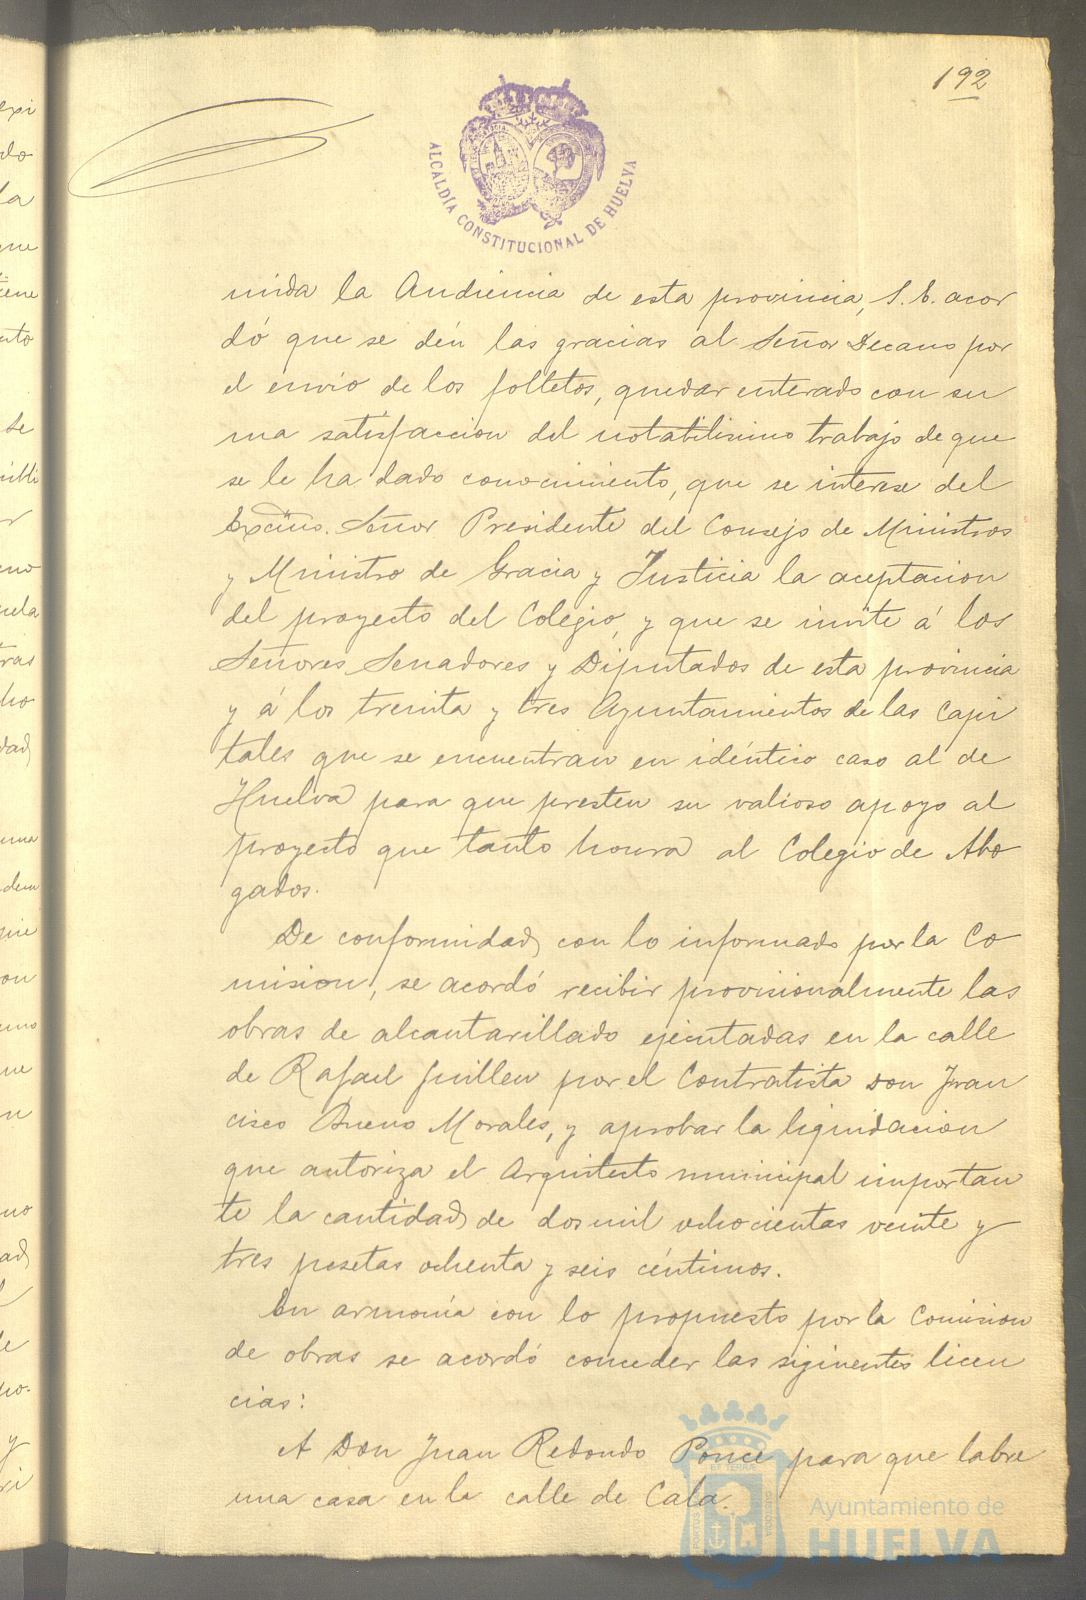 192
ALCALDÍA CONSTITUCIONAL DE HUELVA
unida la Audiencia de esta provincia, S. E. acor
dó que se dén las gracias al Señor Decano por
el envio de los folletos, quedar enterado con su
ma satisfaccion del notabilisimo trabajo de que
se le ha dado conocimiento, que se interese del
Excmo. Señor Presidente del Consejo de Ministros
y Ministro de Gracia y Justicia la aceptacion
del proyecto del Colegio, y que se invite á los
Señores Senadores y Diputados de esta provincia
y á los treinta y tres Ayuntamientos de las Capi
tales que se encuentran en idéntico caso al de
Huelva para que presten su valioso apoyo al
proyecto que tanto honra al Colegio de Abo
gados.
De conformidad con lo informado por la Co
mision, se acordó recibir provisionalmente las
obras de alcantarillado ejecutadas en la calle
de Rafael Guillen por el Contratista Don Fran
cisco Bueno Morales, y aprobar la liquidacion
que autoriza el Arquitecto municipal importan
te la cantidad de dos mil ochocientas veinte y
tres pesetas ochenta y seis céntimos.
En armonía con lo propuesto por la Comision
de obras se acordó conceder las siguientes licen
cias:
A Don Juan Redondo Ponce para que labre
una casa en la calle de Cala.
Ayuntamiento de
HUELVA